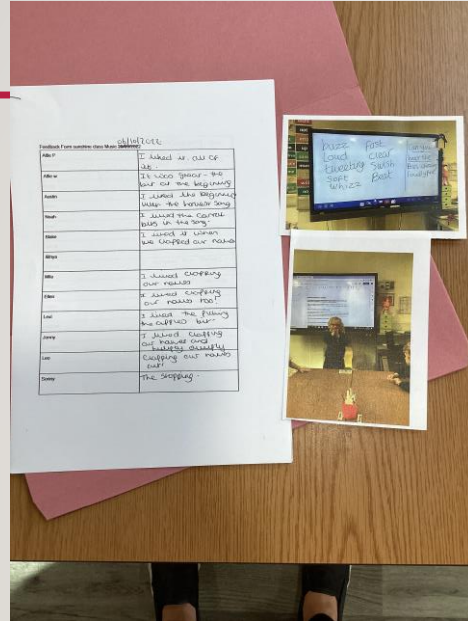 06/10/2022
Feedback Form sunshine class Music
Allie P
I liked it all of
it.
Allie w
It was great - the
bit at the beginning
Austin
I liked the beginning
with the harvest song
Noah
I liked the carrot
bus in the song.
I liked it when
we clapped our names
I liked clapping
our names
Ellen
I liked clapping
our names too!
I liked the picking
the apples bit
Jonny
I liked clapping
our names and
humpty dumpty
Leo
Clapping our names
out!
Sonny
The stopping.
buzz fast
loud clear
tweeting swish
soft Beat
whizz